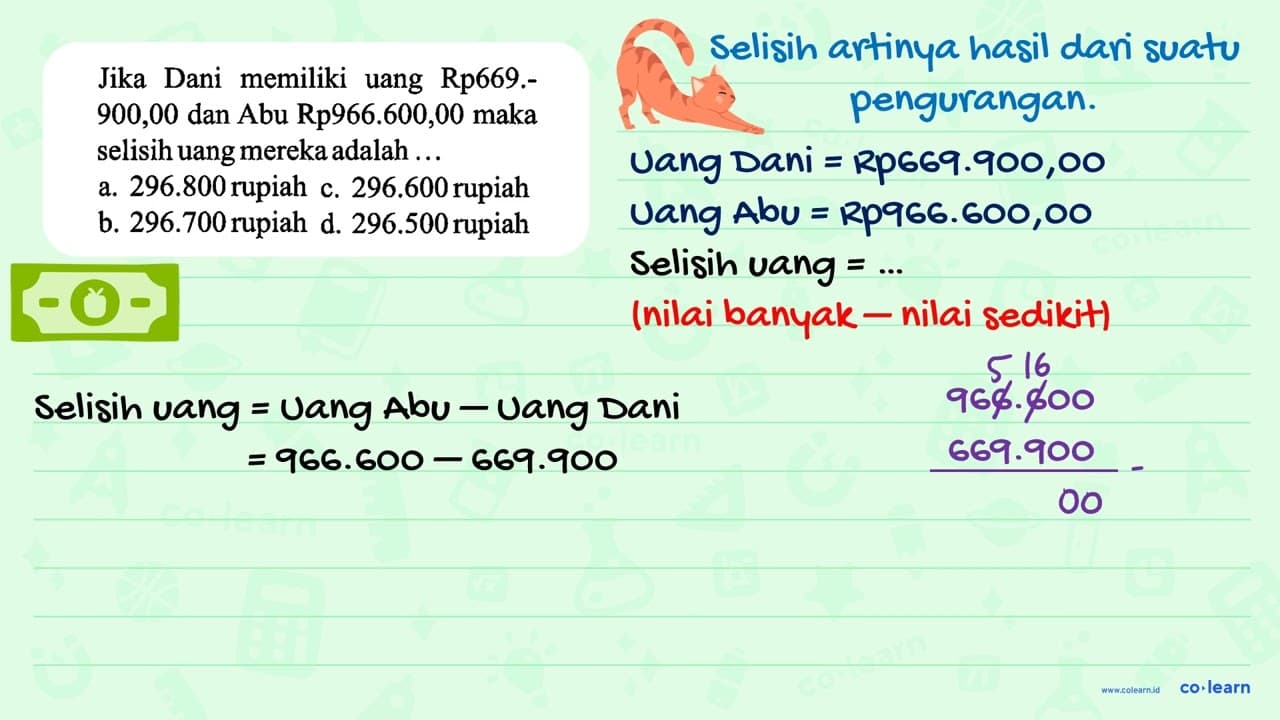 Jika Dani memiliki uang Rp669.-
900,00 dan Abu Rp966.600,00 maka
selisih uang mereka adalah ...
a. 296.800 rupiah c. 296.600 rupiah
b. 296.700 rupiah d. 296.500 rupiah
Selisih artinya hasil dari suatu
pengurangan.
Uang Dani = Rp669.900,00
Uang Abu = Rp966.600,00
Selisih uang = ...
(nilai banyak — nilai sedikit)
Selisih uang = Uang Abu — Uang Dani
= 966.600 — 669.900
5 16
966.600
669.900
-
00
www.colearn.id co·learn